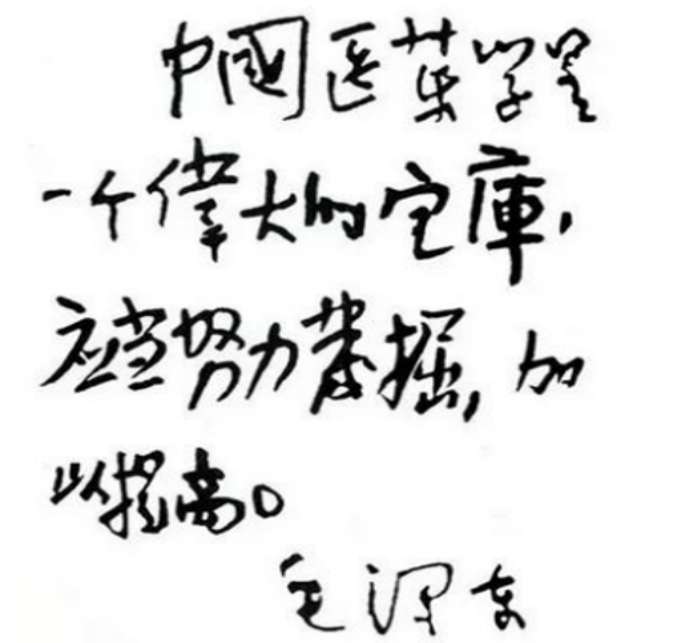 中國医葯学是
一个偉大的宝庫，
应当努力发掘，加
以提高。
毛泽东